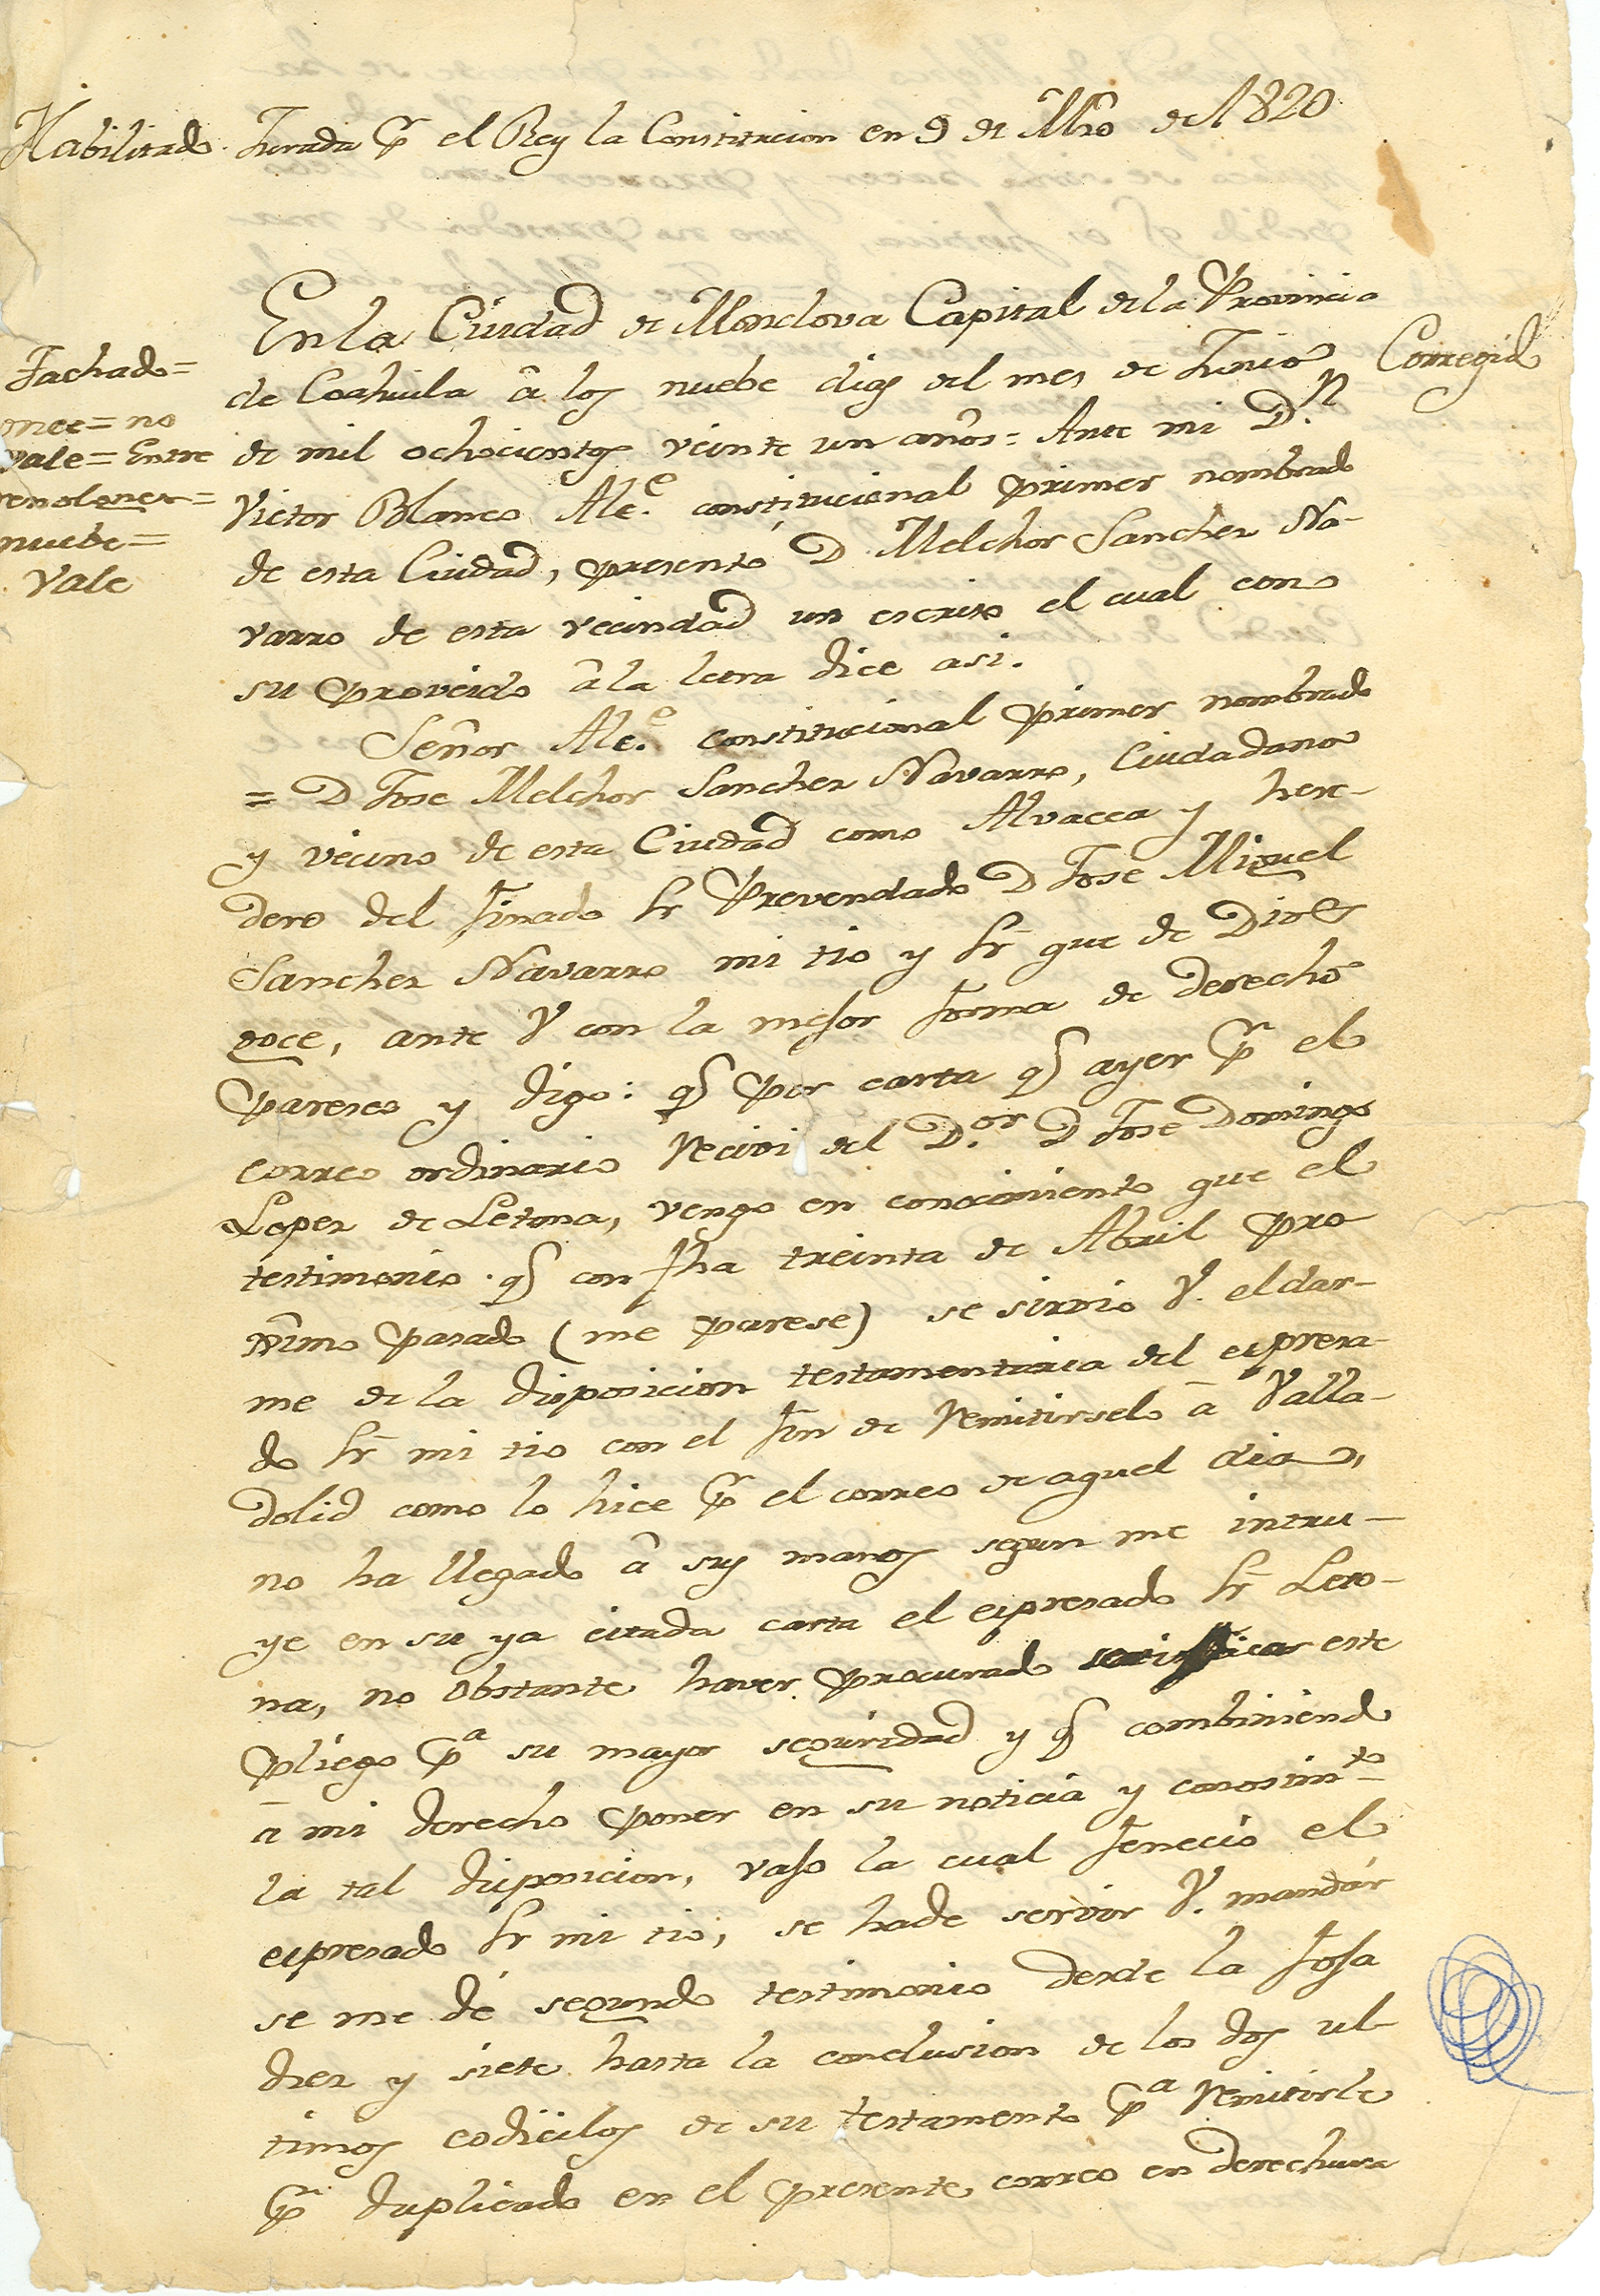 Habilitado Jurada pr el Rey la Constitucion en 9 de Mzo de 1820
En la Ciudad de Monclova Capital de la Provincia
de Coahuila â los nuebe dias del mes de Junio Corregido
de mil ochocientos veinte un años = Ante mi D.n
Victor Blanco Ale.e constitucional primer nombrado
de esta Ciudad, presentó D Melchor Sanchez Na-
varro de esta vecindad un escrito el cual con
su proveido â la letra dice asi.
Señor Ale.e constitucional primer nombrado
= D Jose Melchor Sanchez Navarro, Ciudadano
y vecino de esta Ciudad como Alvacea y here-
dero del finado Sr Prevendado D Jose Miguel
Sanchez Navarro mi tio y Sr que de Dios
goce, ante V con la mejor forma de derecho
paresco y digo: q por carta q ayer pr el
correo ordinario recivi del D.or D Jose Domingo
Lopez de Letona, vengo en conocimiento que el
testimonio q con fha treinta de Abril pro
ximo pasado (me parese) se sirvio V. el dar-
me de la disposicion testamentaria del espresa-
do Sr mi tio con el fin de remitirselo â Valla-
dolid como lo hice pr el correo de aquel dia,
no ha llegado â sus manos segun me intru-
ye en su ya citada carta el espresado Sr Leto-
na, no obstante haver procurado este
pliego pa su mayor seguridad y q combiniendo
â mi derecho poner en su noticia y conosimto
la tal disposicion, vajo la cual fenecio el
espresado Sr mi tio, se ha de servir V. mandar
se me dé segundo testimonio desde la foja
diez y siete hasta la conclusion de los dos ul-
timos codicilos de su testamento pa remitirle
pr duplicado en el presente correo en derechura
Tachado=
mee= no
vale= Entre
renglones=
nuebe=
Vale